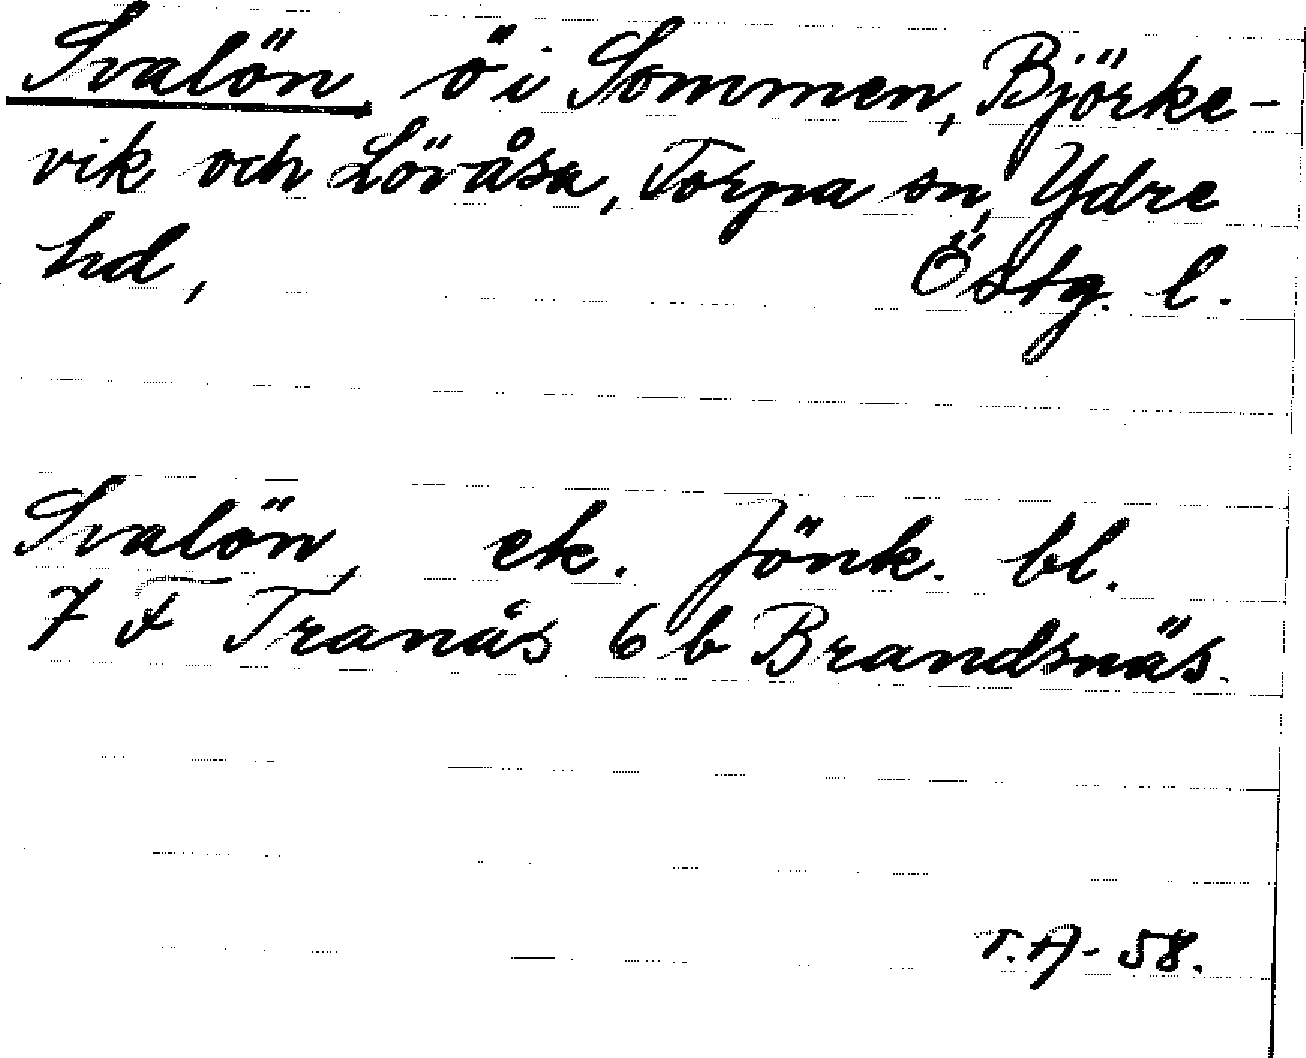 Svalön ö i Sommen, Björke-
vik och Lövåsa, Torpa sn, Ydre
hd, Östg. l.
Svalön, ek. Jönk. bl.
7 F Tranås 6 b Brandsnäs.
T.A- 58.